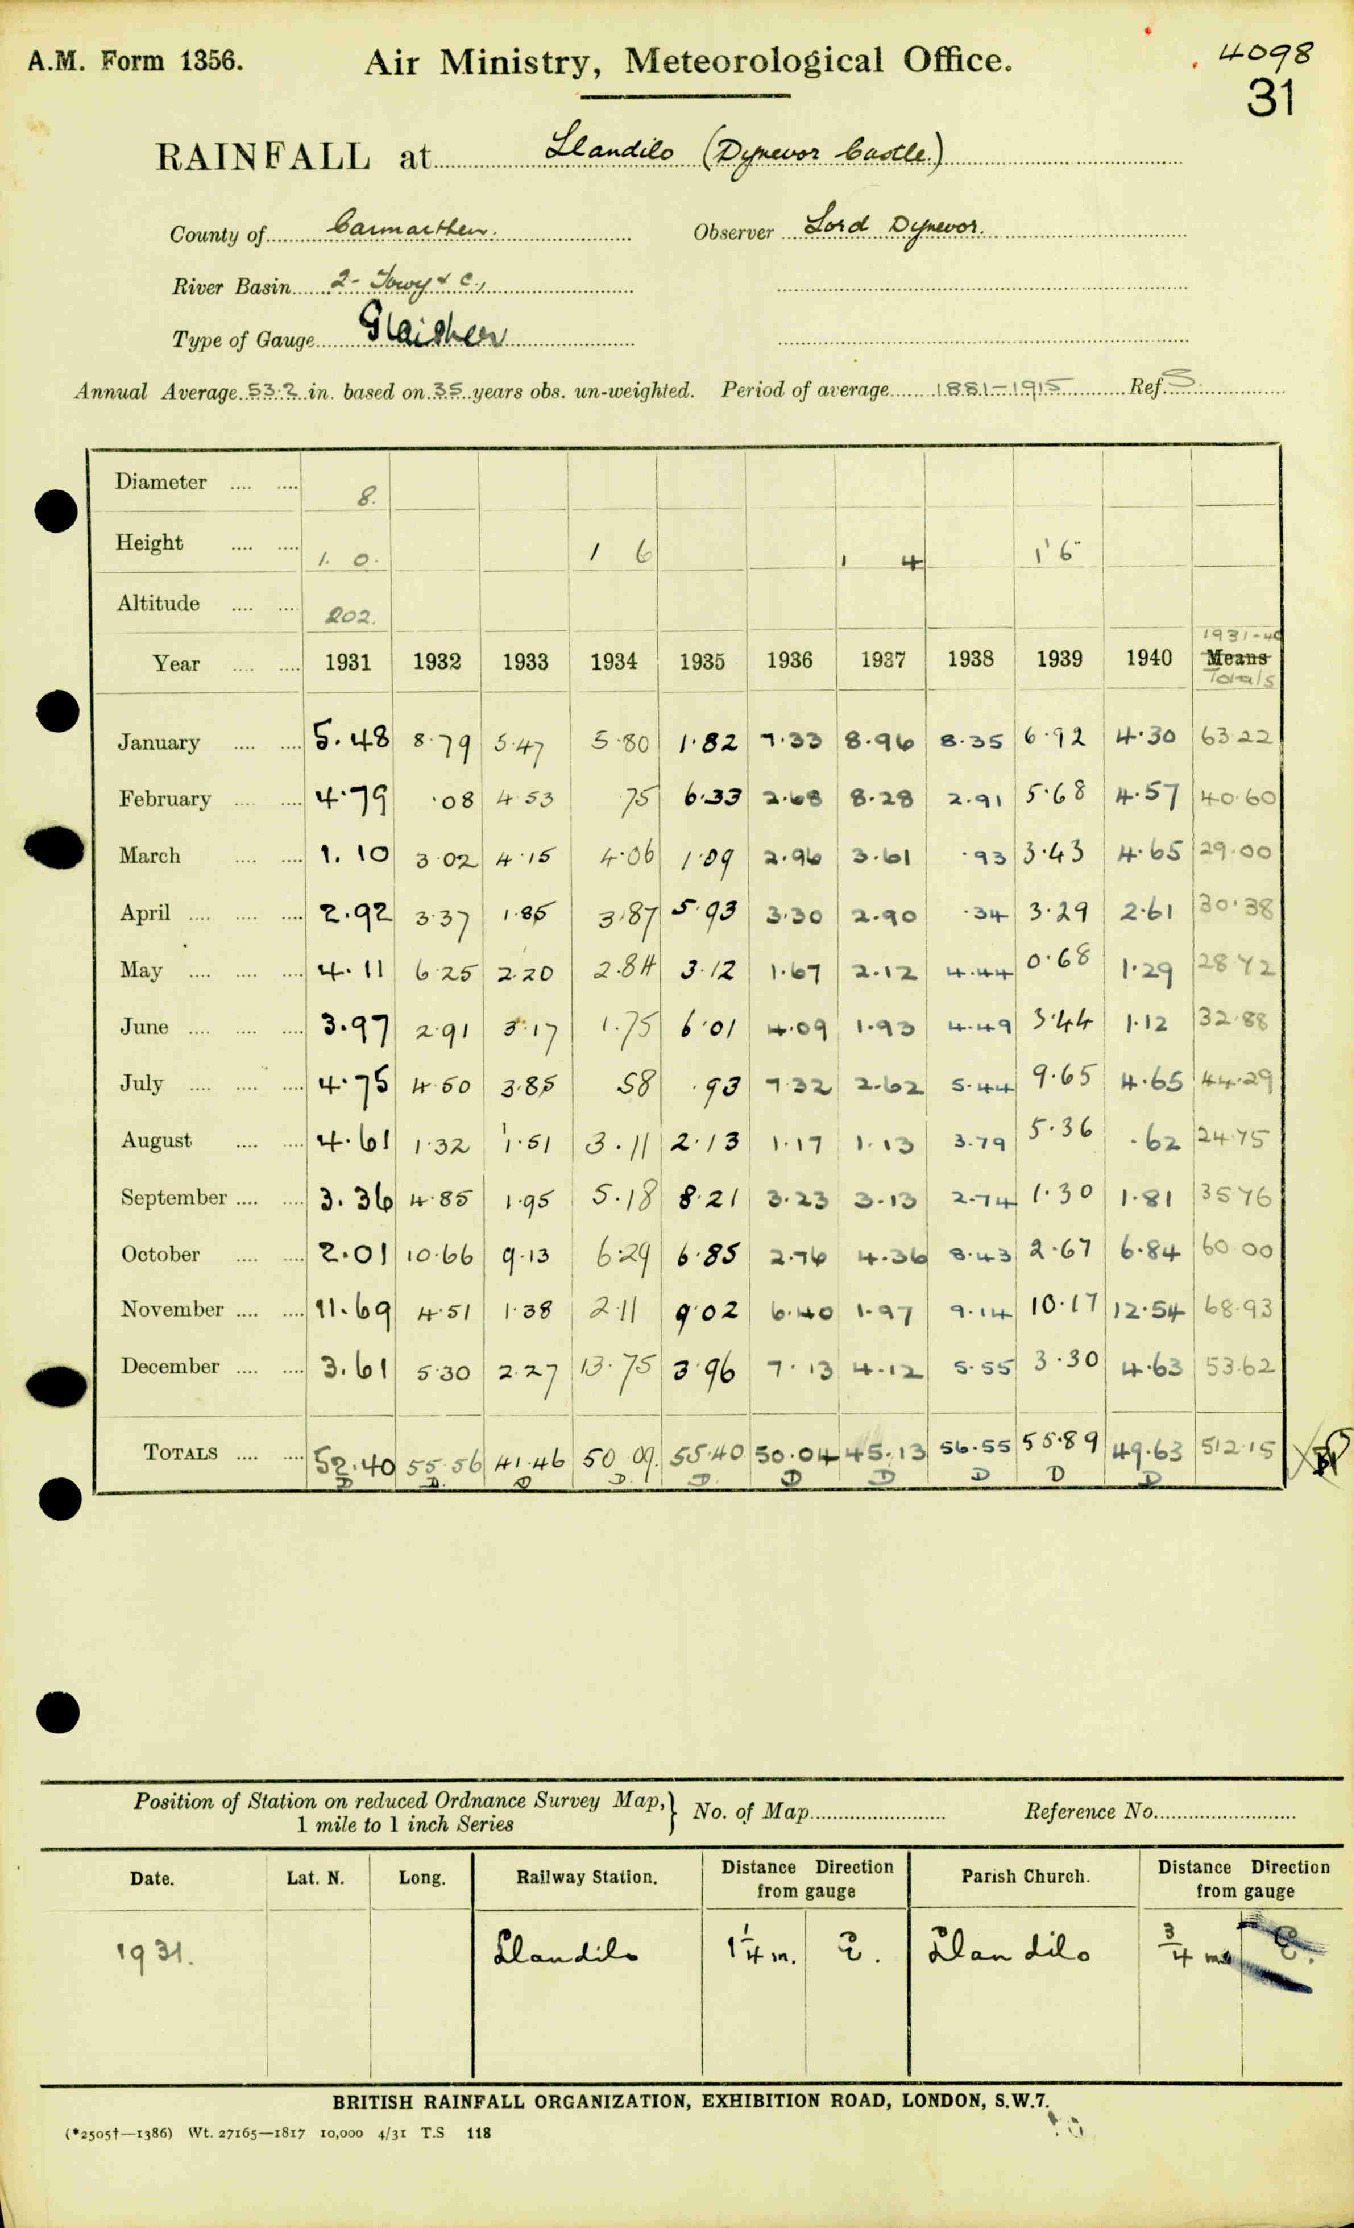 A.M. Form 1356.
Air Ministry, Meteorological Office.
4098
31
RAINFALL at Llandilo (Dynevor Castle)
County of Carmarthen. Observer Lord Dynevor.
River Basin 2- Towy & c.,
Type of Gauge Glaisher
Annual Average 53.2 in. based on 35 years obs. un-weighted. Period of average 1881-1915 Ref. S.
Diameter 8.
Height 1. 0. 1 6 1 4 1'6"
Altitude 202.
1931-40
Year 1931 1932 1933 1934 1935 1936 1937 1938 1939 1940 Means
Totals
January 5.48 8.79 5.47 5.80 1.82 7.33 8.96 8.35 6.92 4.30 63.22
February 4.79 .08 4.53 75 6.33 2.68 8.28 2.91 5.68 4.57 40.60
March 1.10 3.02 4.15 4.06 1.09 2.96 3.61 .93 3.43 4.65 29.00
April 2.92 3.37 1.85 3.87 5.93 3.30 2.90 .34 3.29 2.61 30.38
May 4.11 6.25 2.20 2.84 3.12 1.67 2.12 4.44 0.68 1.29 28.72
June 3.97 2.91 3.17 1.75 6.01 4.09 1.93 4.49 3.44 1.12 32.88
July 4.75 4.50 3.85 58 .93 7.32 2.62 5.44 9.65 4.65 44.29
August 4.61 1.32 1.51 3.11 2.13 1.17 1.13 3.79 5.36 .62 24.75
September 3.36 4.85 1.95 5.18 8.21 3.23 3.13 2.74 1.30 1.81 35.76
October 2.01 10.66 9.13 6.29 6.85 2.76 4.36 8.43 2.67 6.84 60.00
November 11.69 4.51 1.38 2.11 9.02 6.40 1.97 9.14 10.17 12.54 68.93
December 3.61 5.30 2.27 13.75 3.96 7.13 4.12 5.55 3.30 4.63 53.62
TOTALS 52.40 55.56 41.46 50.09 55.40 50.04 45.13 56.55 55.89 49.63 512.15
D D D D D D D D D D
Position of Station on reduced Ordnance Survey Map, 1 mile to 1 inch Series } No. of Map Reference No.
Date. Lat. N. Long. Railway Station. Distance Direction from gauge Parish Church. Distance Direction from gauge
1931. Llandilo 1 1/4 m. E. Llandilo 3/4 m E.
BRITISH RAINFALL ORGANIZATION, EXHIBITION ROAD, LONDON, S.W.7.
(*2505†—1386) Wt. 27165—1817 10,000 4/31 T.S 118